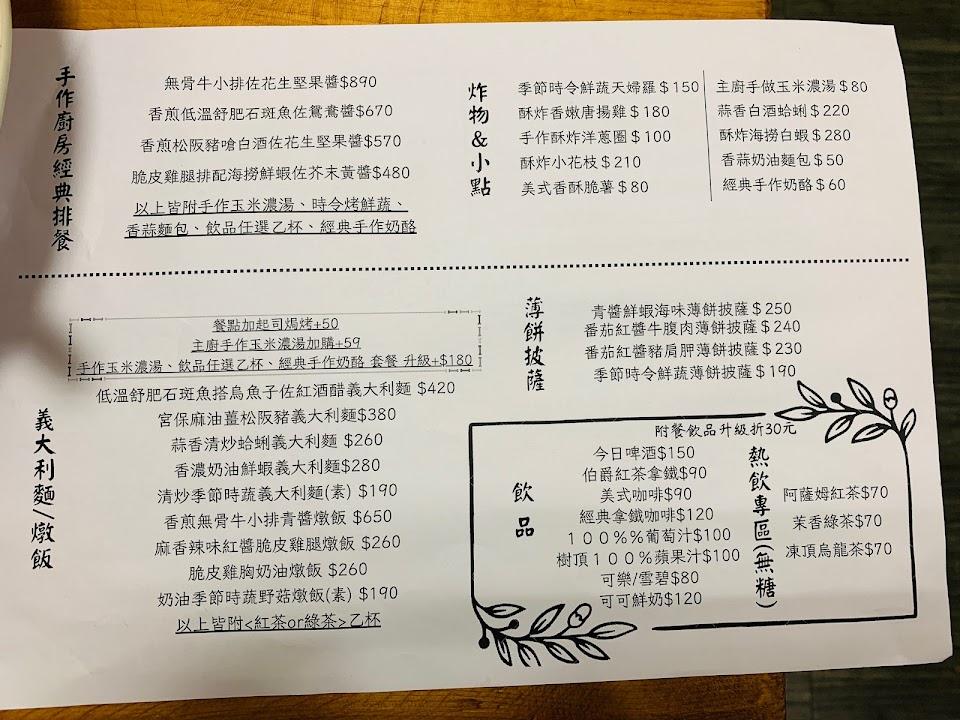 手作廚房經典排餐
無骨牛小排佐花生堅果醬$890
香煎低溫舒肥石斑魚佐鴛鴦醬$670
香煎松阪豬嗆白酒佐花生堅果醬$570
脆皮雞腿排配海撈鮮蝦佐芥末黃醬$480
以上皆附手作玉米濃湯、時令烤鮮蔬、
香蒜麵包、飲品任選乙杯、經典手作奶酪
炸物&小點
季節時令鮮蔬天婦羅$150
酥炸香嫩唐揚雞$180
手作酥炸洋蔥圈$100
酥炸小花枝$210
美式香酥脆薯$80
主廚手做玉米濃湯$80
蒜香白酒蛤蜊$220
酥炸海撈白蝦$280
香蒜奶油麵包$50
經典手作奶酪$60
義大利麵/燉飯
餐點加起司焗烤+50
主廚手作玉米濃湯加購+59
手作玉米濃湯、飲品任選乙杯、經典手作奶酪 套餐 升級+$180
低溫舒肥石斑魚搭烏魚子佐紅酒醋義大利麵 $420
宮保麻油薑松阪豬義大利麵$380
蒜香清炒蛤蜊義大利麵 $260
香濃奶油鮮蝦義大利麵$280
清炒季節時蔬義大利麵(素) $190
香煎無骨牛小排青醬燉飯 $650
麻香辣味紅醬脆皮雞腿燉飯 $260
脆皮雞胸奶油燉飯 $260
奶油季節時蔬野菇燉飯(素) $190
以上皆附<紅茶or綠茶>乙杯
薄餅披薩
青醬鮮蝦海味薄餅披薩$250
番茄紅醬牛腹肉薄餅披薩$240
番茄紅醬豬肩胛薄餅披薩$230
季節時令鮮蔬薄餅披薩$190
附餐飲品升級折30元
飲品
今日啤酒$150
伯爵紅茶拿鐵$90
美式咖啡$90
經典拿鐵咖啡$120
100%%葡萄汁$100
樹頂100%蘋果汁$100
可樂/雪碧$80
可可鮮奶$120
熱飲專區(無糖)
阿薩姆紅茶$70
茉香綠茶$70
凍頂烏龍茶$70